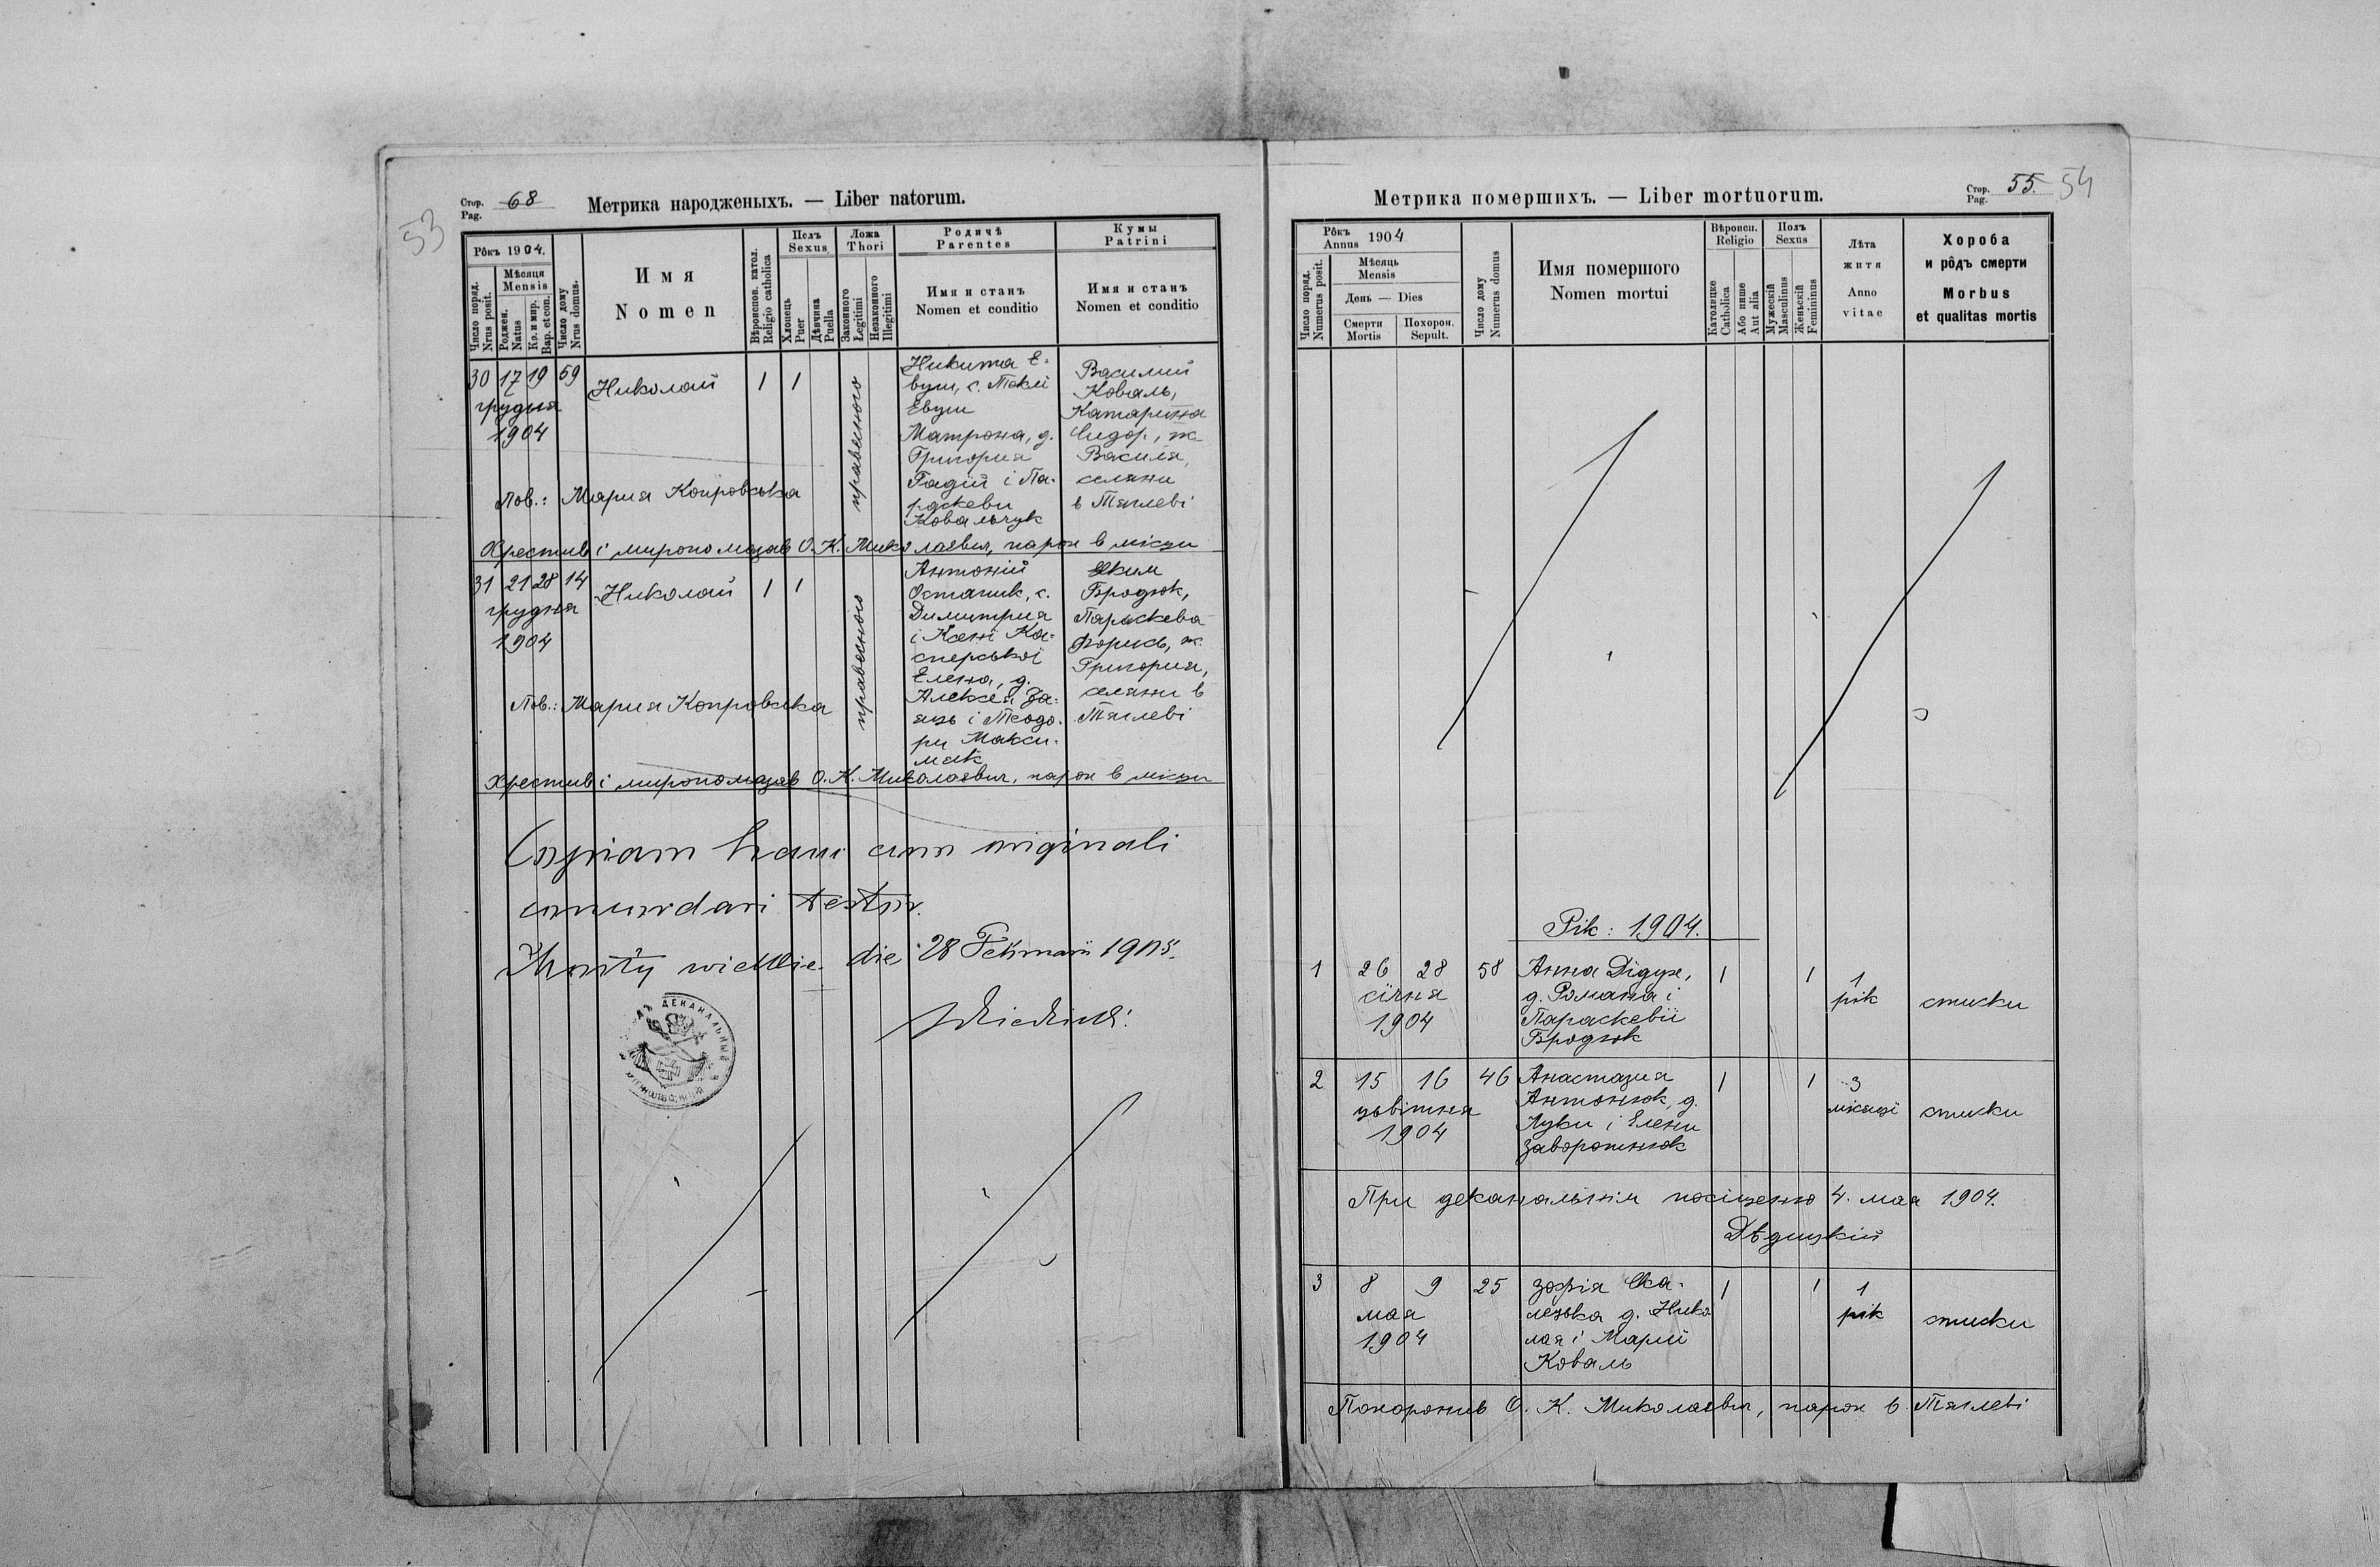 53
Стор. Pag. 68
Метрика народженыхъ. — Liber natorum.
Рôкъ 1904.
Число поряд. Nrus posit.
Мѣсяця Mensis
Роджен. Natus
Кр. и мир. Bap. et con.
Число дому Nrus domus.
Имя
Nomen
Вѣроиспов. катол. Religio catholica
Полъ Sexus
Хлопець Puer
Дѣвчина Puella
Ложа Thori
Законного Legitimi
Незаконного Illegitimi
Родичѣ Parentes
Имя и станъ
Nomen et conditio
Кумы Patrini
Имя и станъ
Nomen et conditio
30 17 19 59 Николай 1 1
грудня
1904
правесного
Никита Е-
вуш, с. Теклї
Евуш
Матрона, д.
Григория
Гадїй і Па-
раскеви
Ковальчук
Василий
Коваль,
Катарина
Сидор, ж.
Василя,
селяни
в Тяглеві
Пов.: Мария Копровська
Хрестив і миропомазав О. К. Миколаєвич, парох в місци
31 21 28 14 Николай 1 1
грудня
1904
правесного
Антоній
Остапик, с.
Димитрия
і Ксенї Ка-
сперської
Елена, д.
Алексея За-
яць і Теодо-
ри Макси-
мак
Яким
Бродюк,
Параскева
Форись, ж.
Григория,
селяни в
Тяглеві
Пов.: Мария Копровська
Хрестив і миропомазав О. К. Миколаєвич, парох в місци
Copiam hanc cum originali
concordari testor.
die 28 Februarii 1905.
ДЕКАНАЛЬНЫЙ
Метрика помершихъ. — Liber mortuorum.
Стор. Pag. 55. 54
Рôкъ Annus 1904
Число поряд. Numerus posit.
Мѣсяць Mensis
День — Dies
Смерти Mortis
Похорон. Sepult.
Число дому Numerus domus
Имя помершого
Nomen mortui
Вѣроисп. Religio
Католицке Catholica
Або инше Aut alia
Полъ Sexus
Мужескій Masculinus
Женьскій Femininus
Лѣта
житя
Anno
vitae
Хороба
и рôдъ смерти
Morbus
et qualitas mortis
Рік: 1904.
1 26 28 58 Анна Дїдух, 1 1 1
січня д. Романа і рік стиски
1904 Параскевії
Бродюк
2 15 16 46 Анастазия 1 1 3
цьвітня Антонюк, д. місяцї стиски
1904 Луки і Елени
Заворотнюк
При деканальнім посїщеню 4. мая 1904.
Дѣдицкій
3 8 9 25 Зофія Ска- 1 1 1
мая лецька д. Нико- рік стиски
1904 лая і Марії
Коваль
Похоронив О. К. Миколаєвич, парох в Тяглеві